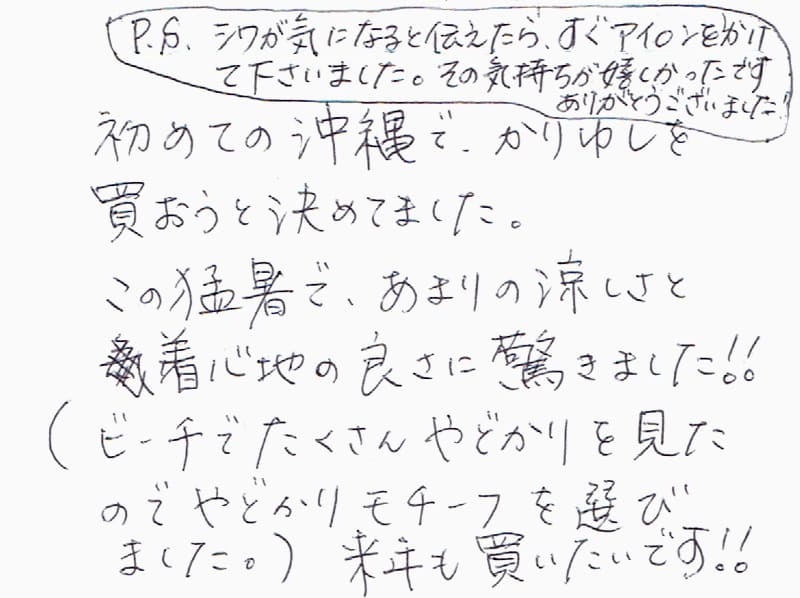 P.S. シワが気になると伝えたら、すぐアイロンをかけ
て下さいました。その気持ちが嬉しかったです
ありがとうございました!
初めての沖縄で、かりゆしを
買おうと決めてました。
この猛暑で、あまりの涼しさと
着心地の良さに驚きました!!
(ビーチでたくさんやどかりを見た
のでやどかりモチーフを選び
ました。) 来年も買いたいです!!